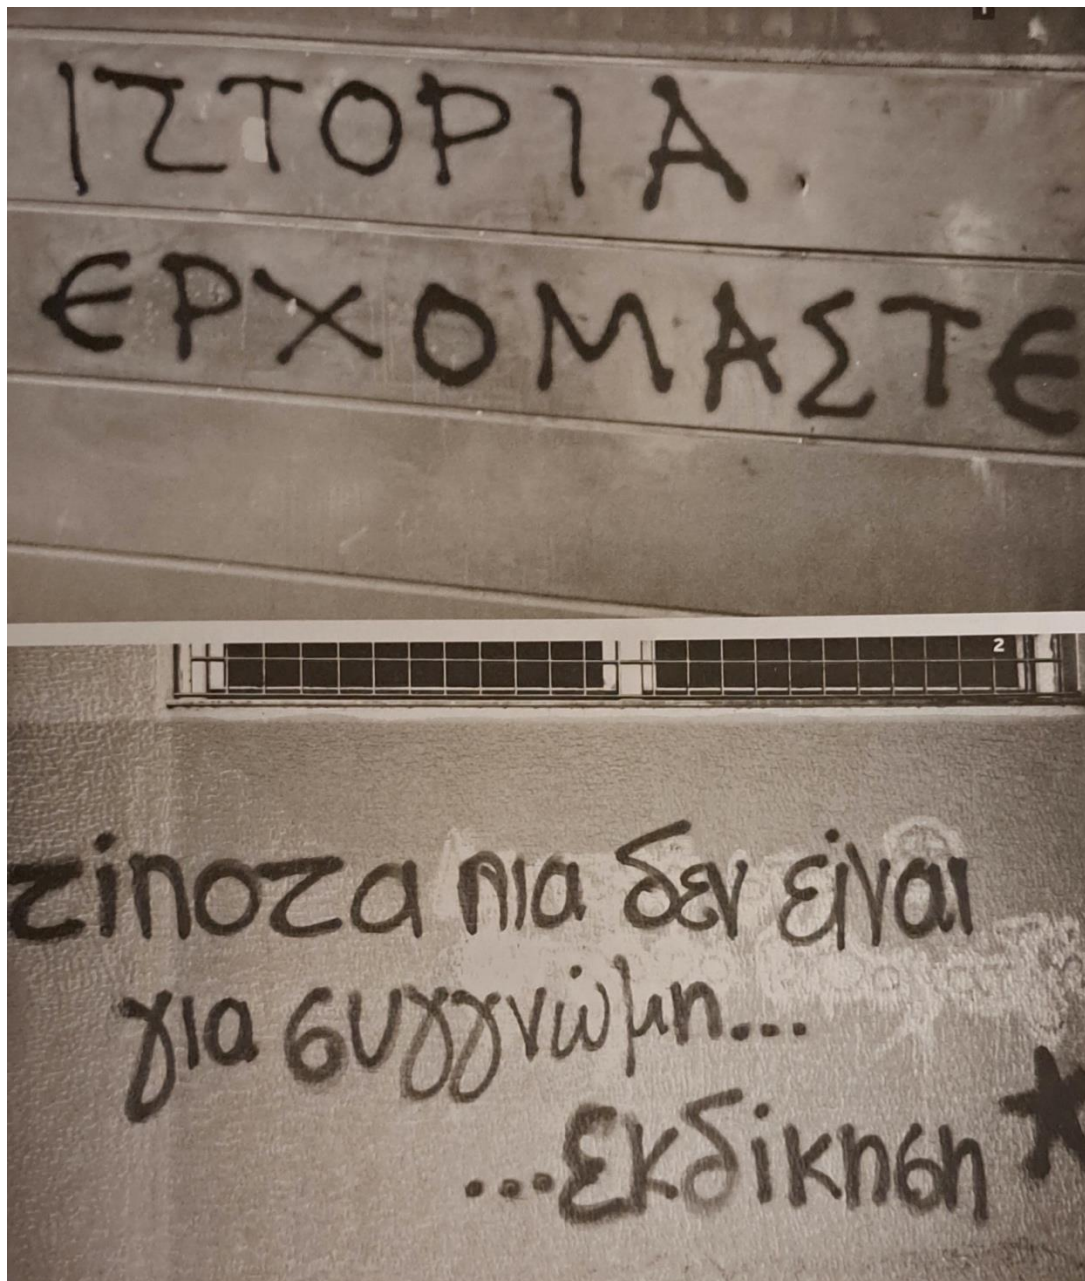 ΙΣΤΟΡΙΑ
ΕΡΧΟΜΑΣΤΕ
2
τίποτα πια δεν είναι
για συγγνώμη...
...εκδίκηση